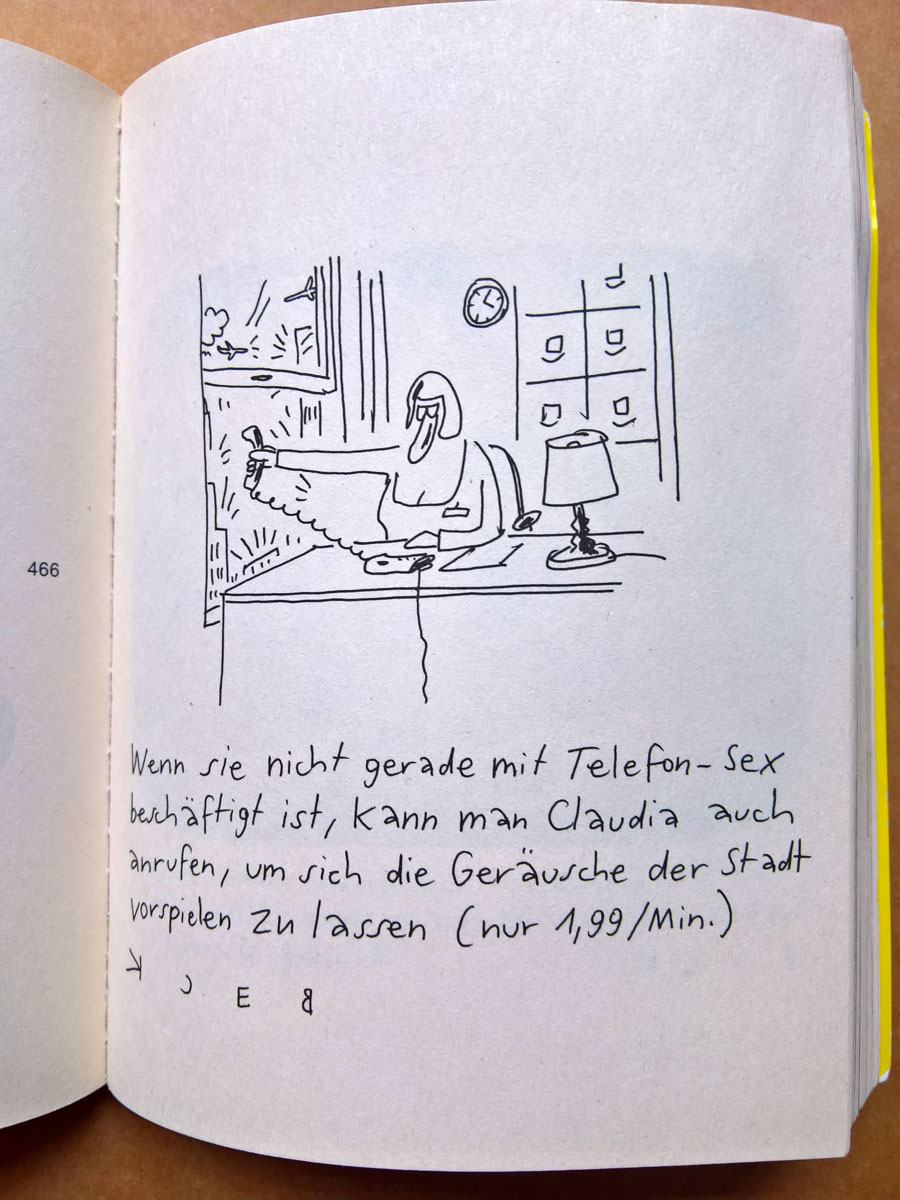 466
Wenn sie nicht gerade mit Telefon-Sex
beschäftigt ist, kann man Claudia auch
anrufen, um sich die Geräusche der Stadt
vorspielen zu lassen (nur 1,99/Min.)